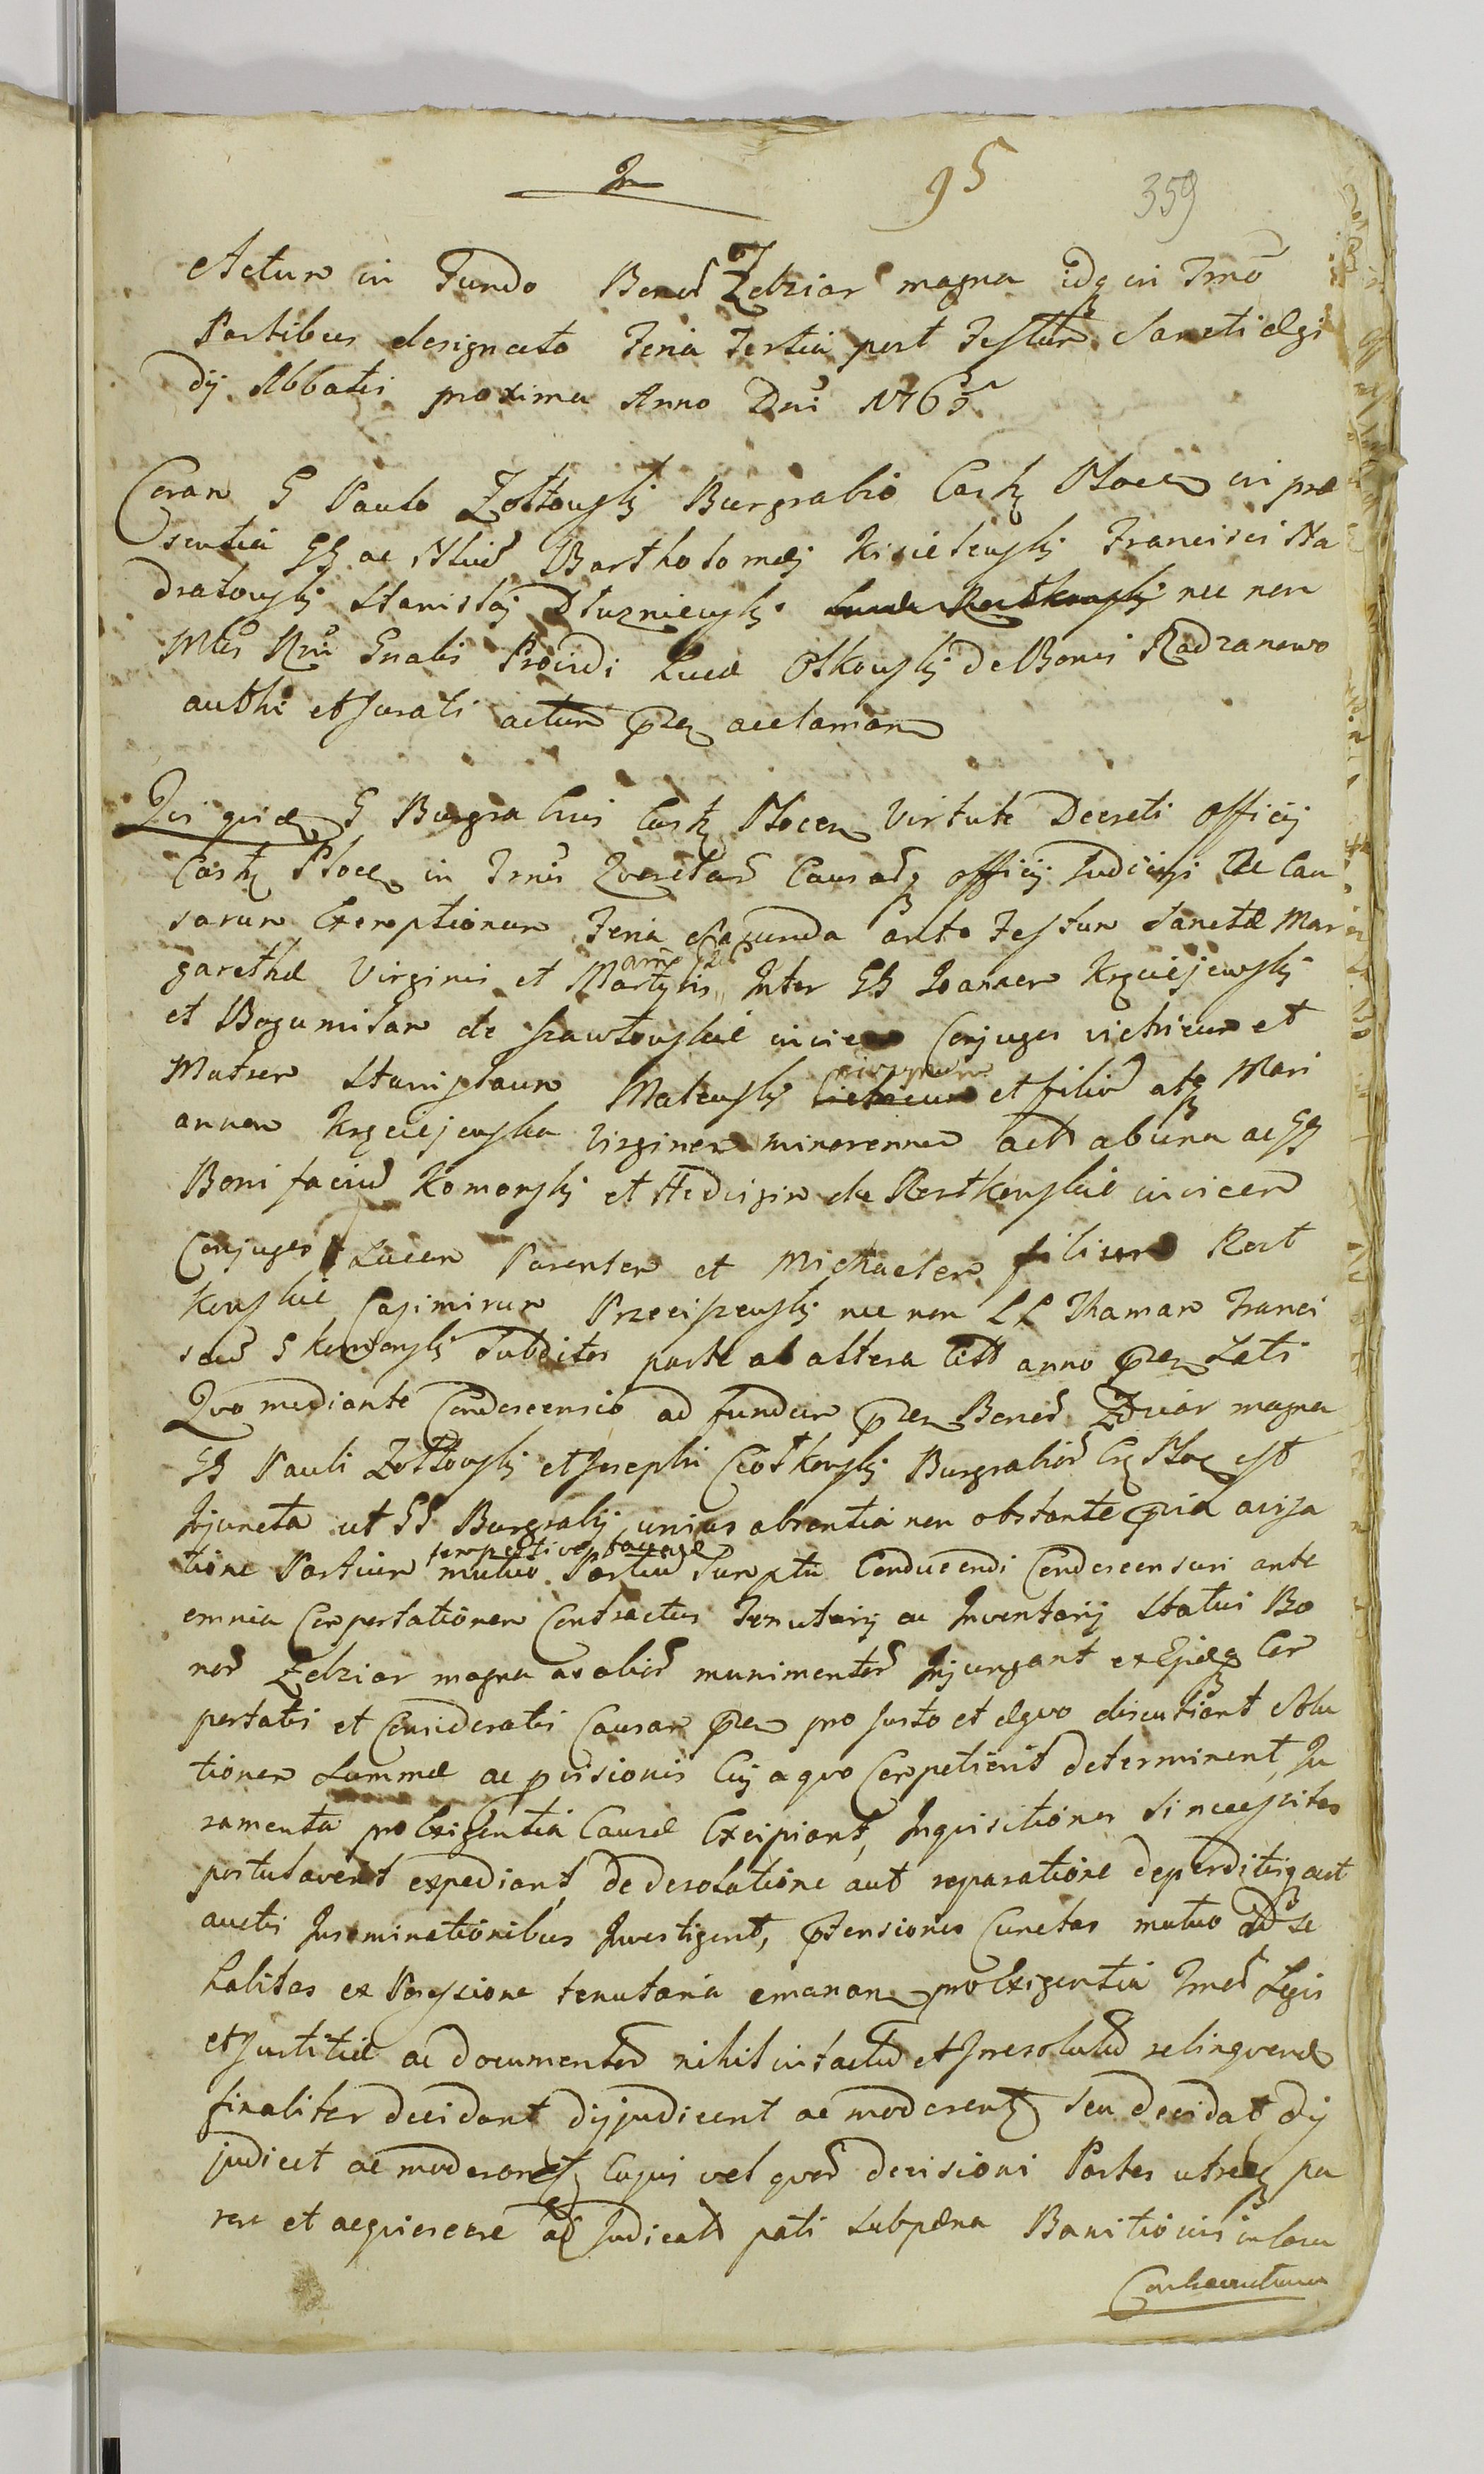 95 359
Actum in Fundo Bonor Zdziar magna idq in Tmo
Partibus designato Feria Tertia post Festum Sancti Ægi
dij Abbatis proxima Anno Dni 1763
Coram G Paulo Zołtowski Burgrabio Castr Plocen in præ
sentia GG ac Nbliu Bartholomæj Kisielewskj Francisci Na
dratowskj Stanislaj Dłuzniewskj nec non
Mtis Rni Gnalis Proindi Lucæ Oskowskj de Bonis Radzanowo
authi et Jurati actum pn acclaman
Qui quid G Burgrabius Castr Plocen Virtute Decreti Officij
Castr Ploce in Tmis Querelar Causarq officij Judicijq de Cau
sarum Exemptionum Feria Secunda ante Festum Sanctæ Mar
garethæ Virginis et Martyris Inter GG Joannem Krzeciejewskj
et Bogumilam de Szawłowskie invicem Conjuges vitricum et
Matrem Stanislaum Malewskj privignum et filiu atq Mari
annam Krzeciejewska Virginem minorennem act ab una ac GG
Bonifaciu Komorskj et Hedvigim de Rostkowskie invicem
Conjuges Lucam Parentem et Michaelem filium Rost
kowskie Casimirum Przeciszewskj nec non LL Thomam Franci
scu Skonionskj Subditos parte ab altera Citt anno pn Lati
Quo mediante Condescensio ad fundum pn Bonor Zdziar magna
GG Pauli Zołtowskj et Josephi Ciołkowskj Burgrabior Cz Ploc est
Injuncta ut GG Burgrabij, unius absentia non obstante pvia aviza
tione Partium tempestive facienda
mutuo Partiu Sumptu Conducendi Condescensuri ante
omnia Comportationem Contractus Tenutarij ac Inventarij Status Bo
nor Zdziar magna ac alior munimentor Injungant ex Ejusq Com
portatis et Consideratis Causam pn pro justo et æquo discutiant Solu
tionem Summæ ac pvisionis Cuj a quo Competierit determinent, Ju
ramenta pro Exigentia Causæ Excipiant, Inquisitiones si necessitas
postulaverit expediant, de desolatione aut reparatione deperditisq aut
auctis Inseminationibus Investigent, ptensiones Cunctas mutuo ad se
habitas ex Possessione tenutaria emanan pro Exigentia Tmor Legis
et Justitiæ ac documentor nihil intactu et Irresolutu relinquend
finaliter decidant dijjudicent ac moderent seu decidat dij
judicet ac moderaret Cujus vel quor decisioni Partes utreq pa
rere et acquiescere ac Judicatt pati sub pæna Banitionis in Loru
Contraventum